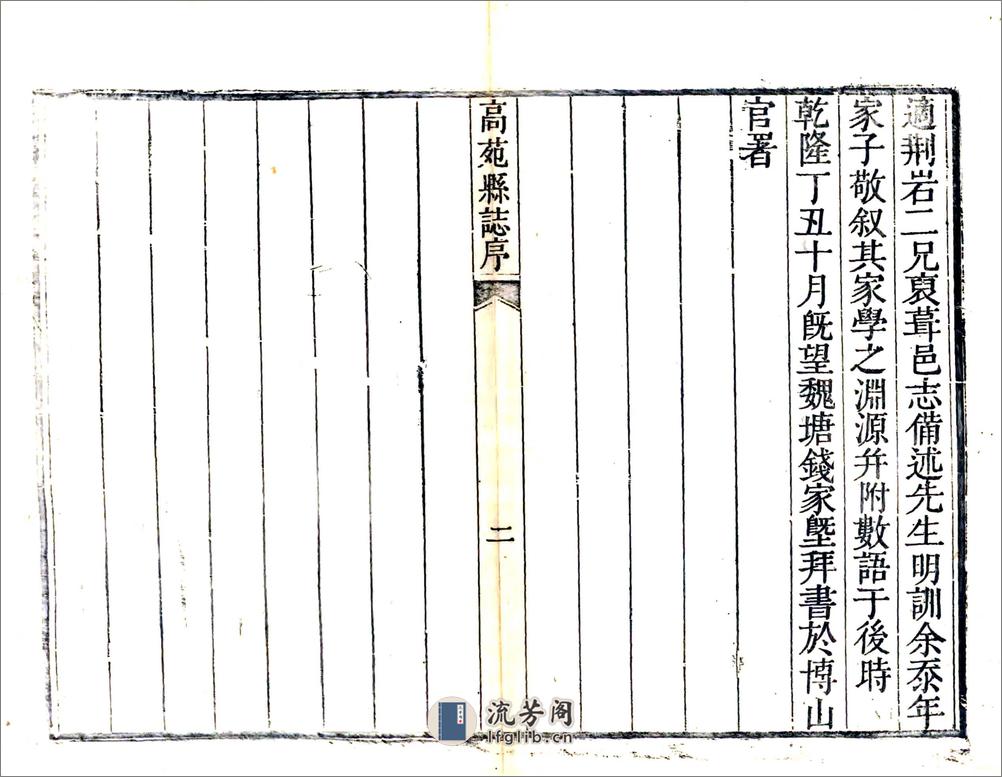 適荆岩二兄裒葺邑志備述先生明訓余忝年
家子敬叙其家學之淵源并附數語于後時
乾隆丁丑十月既望魏塘錢家塈拜書於博山
官署
高苑縣誌序
二
流芳阁
lfglib.cn